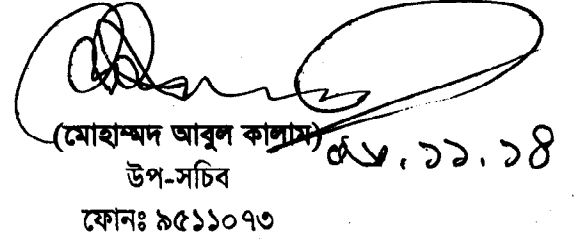 (মোহাম্মদ আবুল কালাম)
.১১.১৪
উপ-সচিব
ফোনঃ ৯৫১১০৭৩